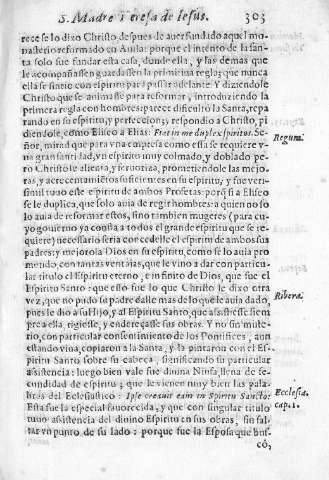 S. Madre Teresa de Iesus. 303
rece se lo dixo Christo, despues de auer fundado aquel monasterio
reformado en Auila: porque el intento de la santa
solo fue fundar esta casa, donde ella, y las demas que
le acompañassen guardassen la primeiua regla; que nunca
ella se fiatio con espiritu para passar adelante. Y diziendole
Christo que se animasse para reformar, introduziendo la
primera regla con hombres: parece dificultò la Santa, reparando
en su espiritu, y perfeccion; respondio a Christo, pidiendole,
como Eliseo a Elias: Fiat in me duplex spiritus. Señor,
mirad que para vna empresa como essa se requiere vna
gran santidad, vn espiritu muy colmado, y doblado pero
Christo le alienta, y feruoriza, prometiendole las mejoras,
y acrecentamiẽtos suficientes en su espiritu, y fue verisimil
vaso este espiritu de ambos Profetas: porq̃ si a Eliseo
se le duplica, que solo auia de regir hombres: a quien no solo
lo auia de reformar estos, sino tambien mugeres (para cuyo
gouierno ya consta a todos el grande espiritu que se requiere)
necessario seria concedelle el espiritu de ambos sus
padres; y mejorola Dios en su espiritu, como se lo auia prometido,
con tantas ventajas, que le vino a dar con particular
titulo el Espiritu eterno, e infinito de Dios, que fue el
Espiritu Santo: que esso fue lo que Christo le dixo otra
vez, que no pudo su padre dalle mas de lo que le auia dado,
pues le dio a su Hijo, y al Espiritu Santo, que assistiesse siempre
a ella, rigiesse, y endereçasse sus obras. Y no sin misterio,
con particular consentimiento de los Pontifices, aun
estando viua, copiaron a la Santa, y la pintaron con el Espiritu
Santo sobre su cabeça, significando su particular
assistencia: luego bien vale fue diuina Ninfa, llena de fecundidad
de espiritu; que le vienen muy bien las palabras
del Eclesiastico: Ipse creauit eam in Spiritu Sancto:
Esta fue la especial fauorecida, y que con singular titulo
tuuo assistencia del diuino Espiritu en sus obras, sin faltar
vn punto de su lado: porque fue la Esposa que buscò,
Regum.
Ribera.
Ecclesia.
cap. 1.